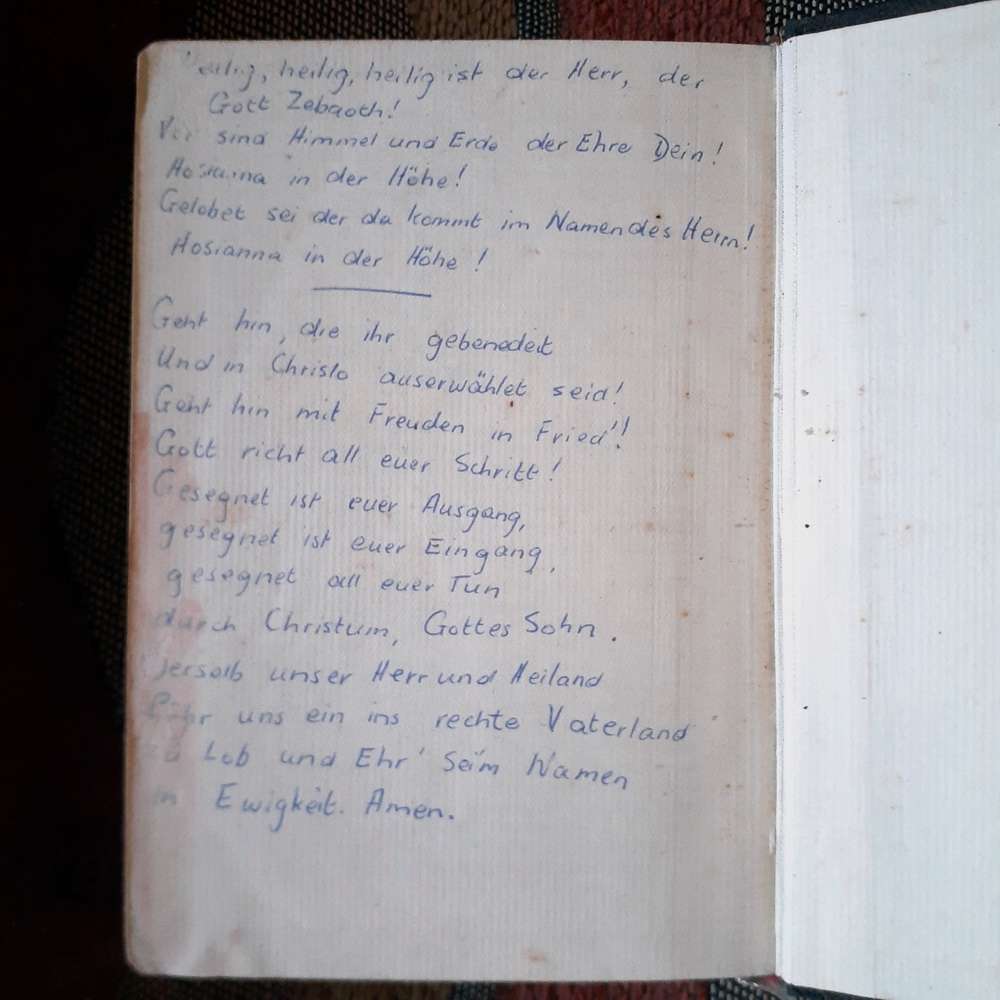 Heilig, heilig, heilig ist der Herr, der
Gott Zebaoth!
Voll sind Himmel und Erde der Ehre Dein!
Hosianna in der Höhe!
Gelobet sei der da kommt im Namen des Herrn!
Hosianna in der Höhe!
Geht hin, die ihr gebenedeit
Und in Christo auserwählet seid!
Geht hin mit Freuden in Fried'!
Gott richt all euer Schritt!
Gesegnet ist euer Ausgang,
gesegnet ist euer Eingang,
gesegnet all euer Tun
durch Christum, Gottes Sohn.
derselb unser Herr und Heiland
Führ uns ein ins rechte Vaterland
zu Lob und Ehr' Seim Namen
in Ewigkeit. Amen.